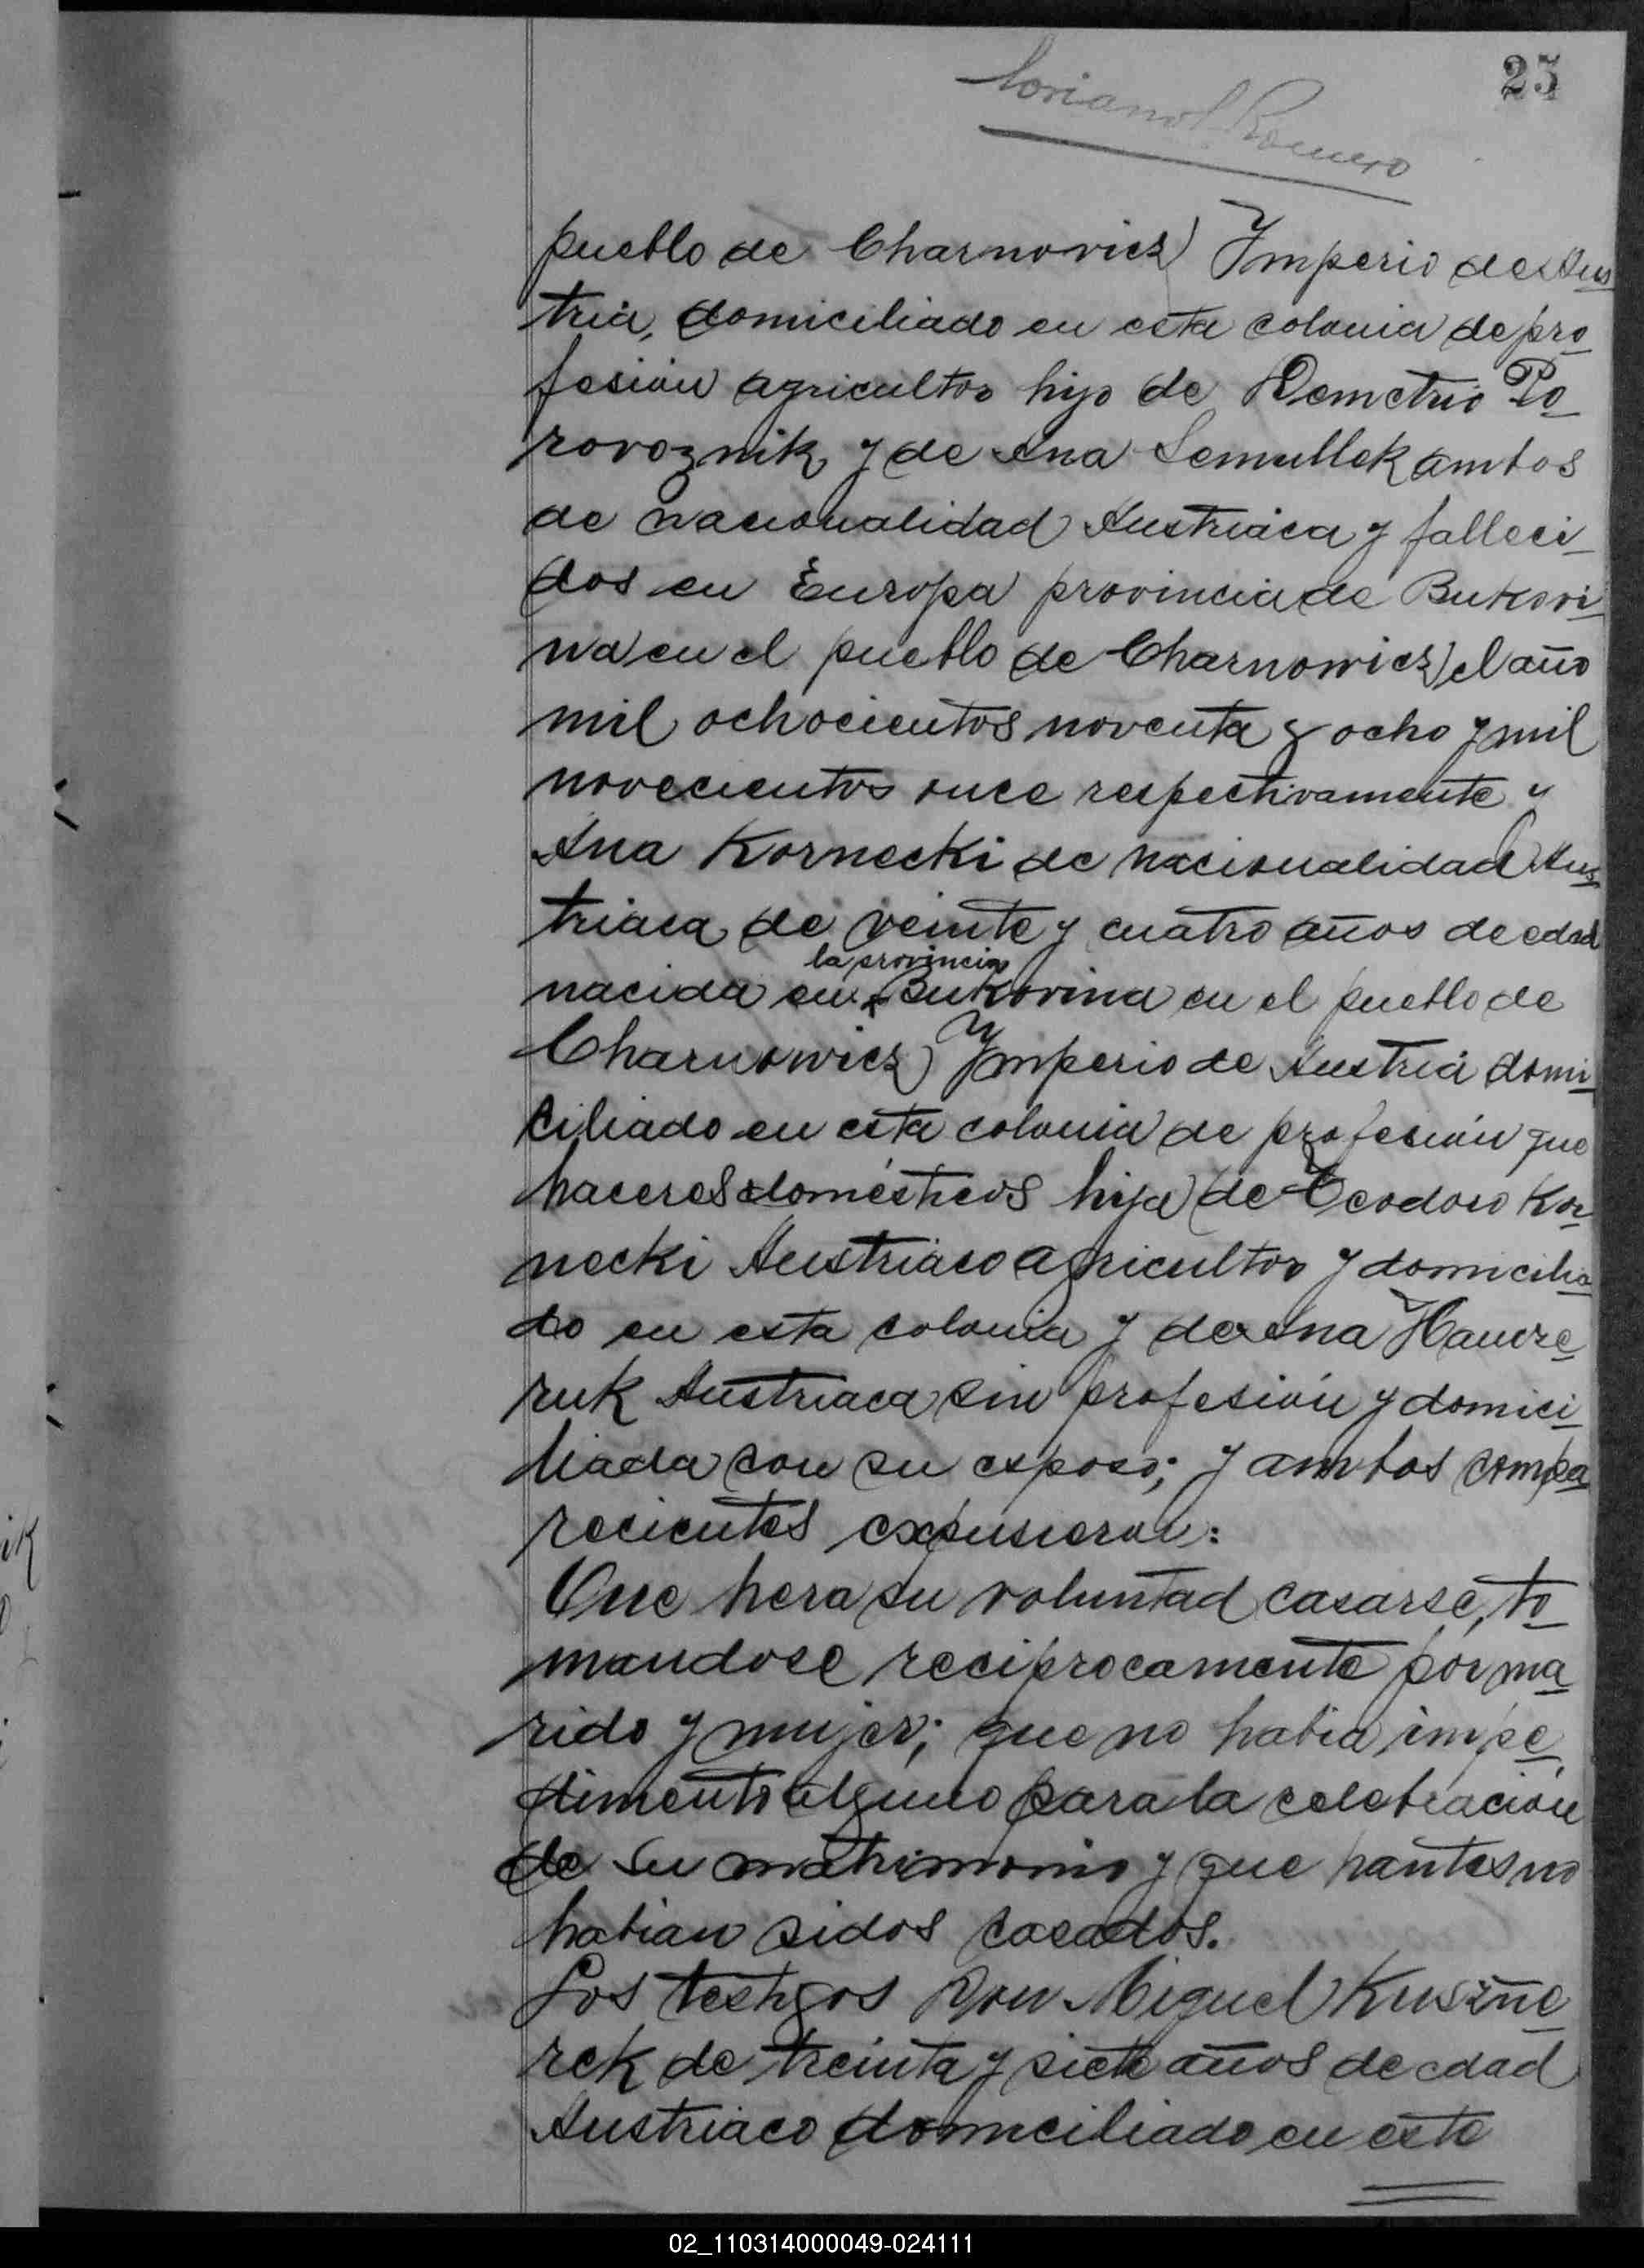 25
Soriano S. Romero
pueblo de Charnovicz Ymperio de Aus
tria, domiciliado en esta colonia de pro
fesión agricultor hijo de Demetrio Po
rovoznik y de Ana Semullek ambos
de nacionalidad Austriáca y falleci
dos en Európa provincia de Bukovi
na en el pueblo de Charnowicz el año
mil ochocientos noventa y ocho y mil
novecientos once respectivamente y
Ana Kornecki de nacionalidad Aus
triaca de veinte y cuatro años de edad
la provincia
nacida en Bukovina en el pueblo de
Charnowicz Ymperio de Austria domi
ciliado en esta colonia de profesión que
haceres domésticos hija de Teodoro Kor
necki Austriáco agricultor y domicilia
do en esta colonia y de Ana Hawre
ruk Austriaca sin profesión y domici
liada con su esposo; y ambos compa
recientes expusieron:
Que hera su voluntad casarse, to
mandose reciprocamente por ma
rido y mujer; que no habia impe
dimento alguno para la celebración
de su matrimonio y que hantes no
habian sidos casados.
Los testigos Don Miguel Kuszñe
rek de treinta y siete años de edad
Austriaco domiciliado en esta
02_110314000049-024111